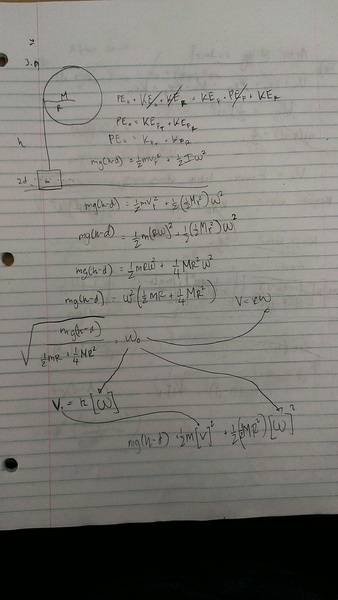 M
R
h
PE₀ + KE₀ + KE_R = KE_F + PE_F + KE_R
PE₀ = KE_F_T + KE_F_R
PE₀ = K_F_T + K_F_R
mg(h-d) = ½mv_F² + ½Iω²
mg(h-d) = ½mv_F² + ½(½Mr²)ω²
mg(h-d) = ½m(Rω)² + ½(½Mr²)ω²
mg(h-d) = ½mRω² + ¼MR²ω²
mg(h-d) = ω²(½mR + ¼MR²)
V = rω
√(mg(h-d) / (½mR + ¼MR²)) = ω₀
V = R[ω]
mg(h-d) = ½m[v]² + ½(½MR²)[ω]²